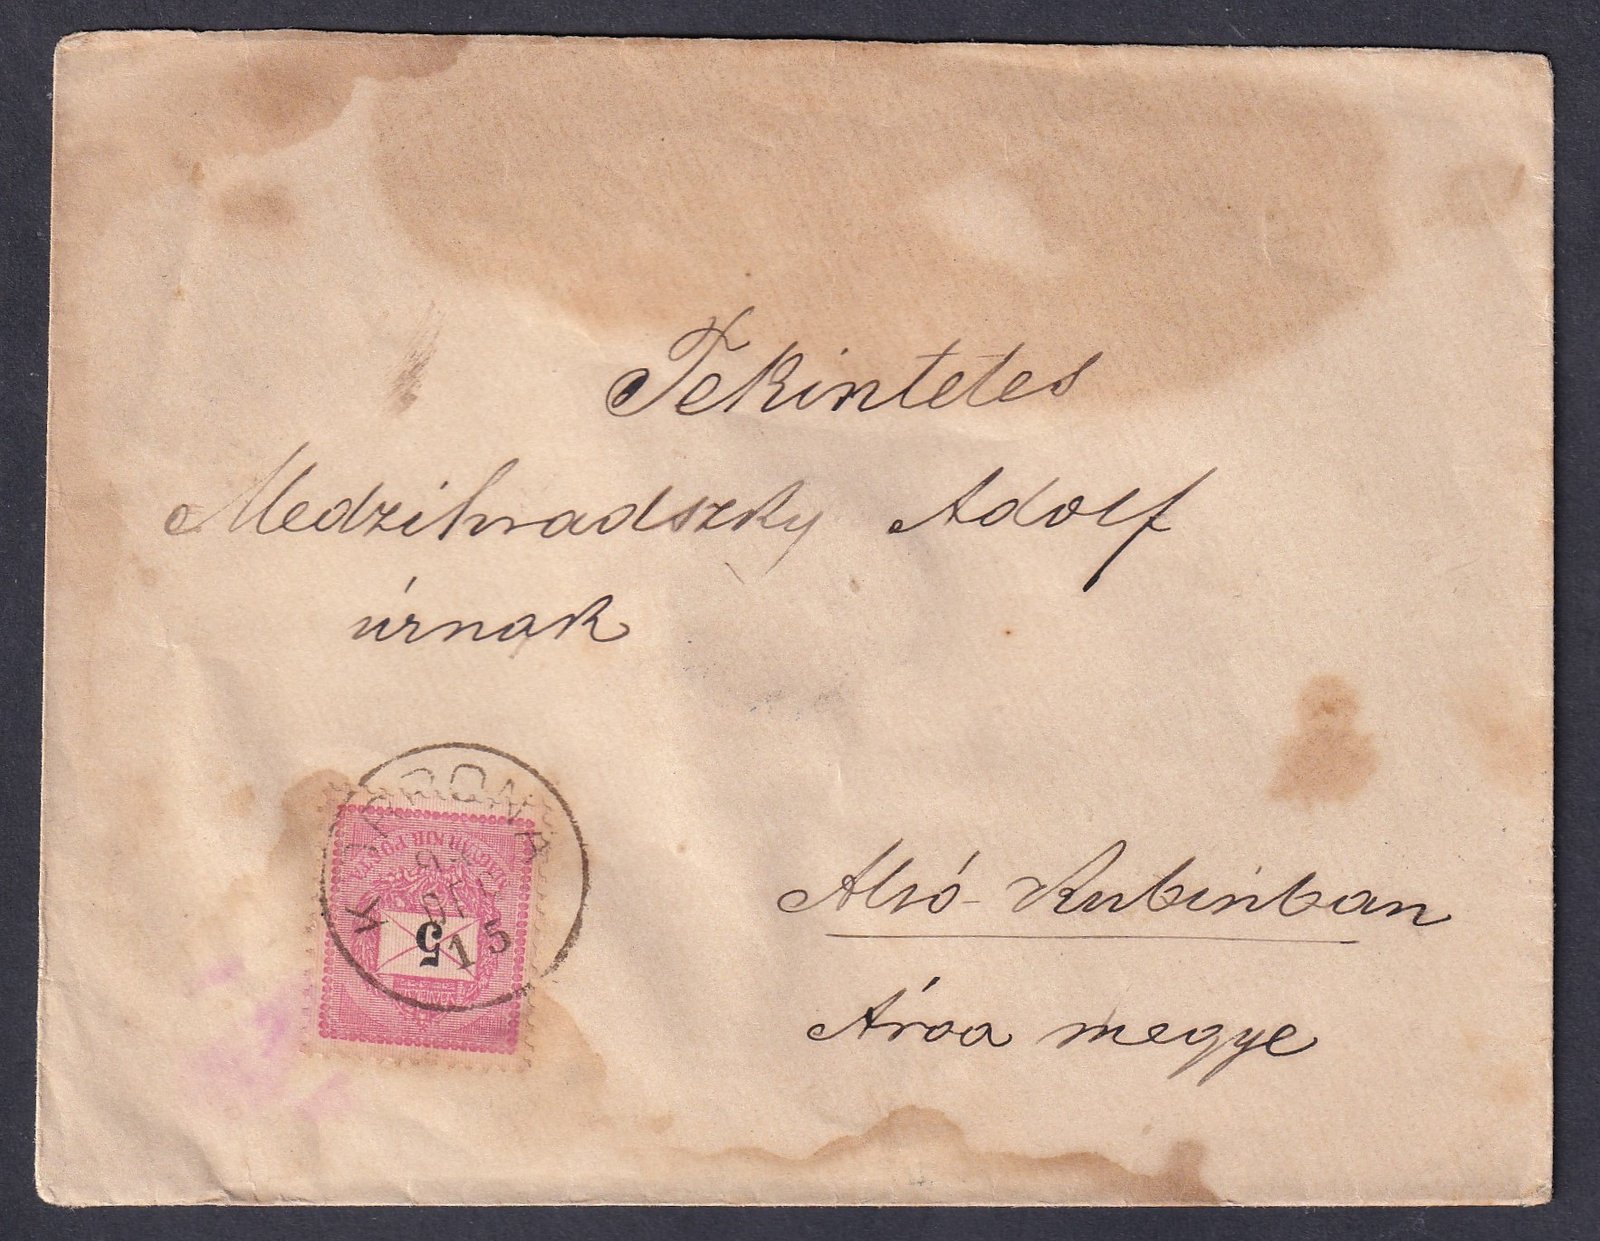 Tekintetes
Medzihradszky Adolf
úrnak
Alsó-Kubinban
Árva megye
MAGYAR KIR. POSTA
5
15